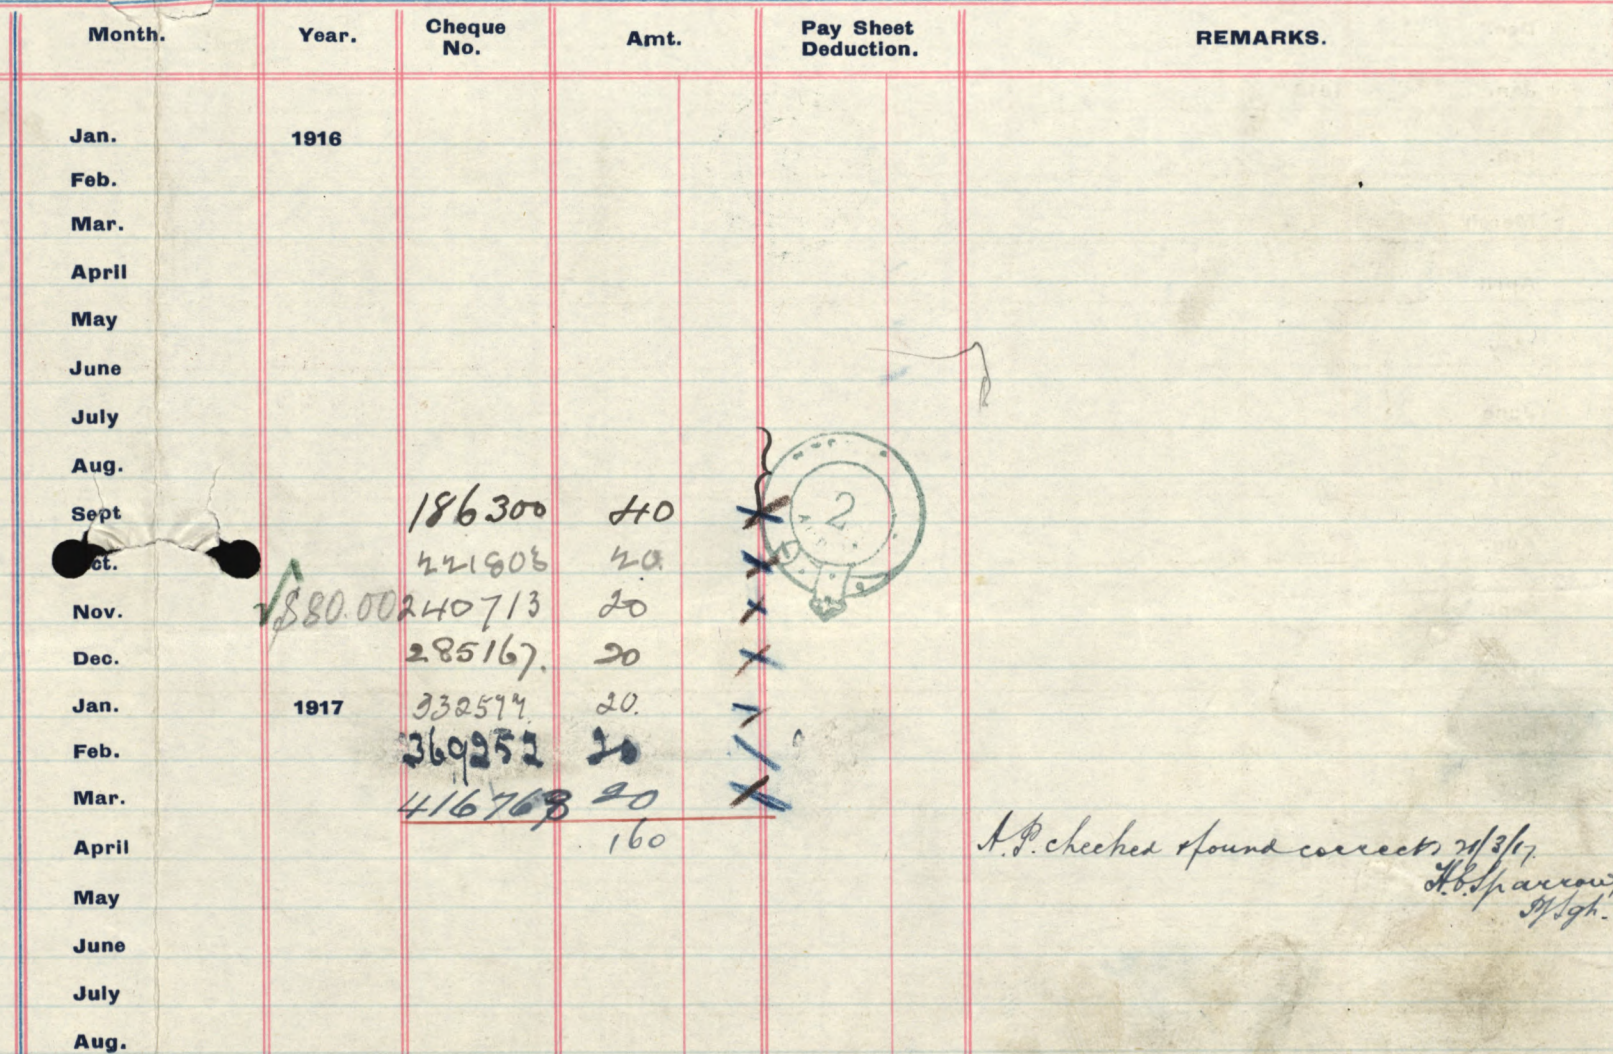 Month. Year. Cheque No. Amt. Pay Sheet Deduction. REMARKS.
Jan. 1916
Feb.
Mar.
April
May
June
July
Aug.
Sept 186300 40
ct. 221803 20.
2
Nov. √$80.00 240713 20
Dec. 285167. 20
Jan. 1917 332577. 20.
Feb. 369252 20
Mar. 416768 20
April 160 A.P. checked & found correct 21/3/17.
May H.C. Sparrow,
June
July
Aug.